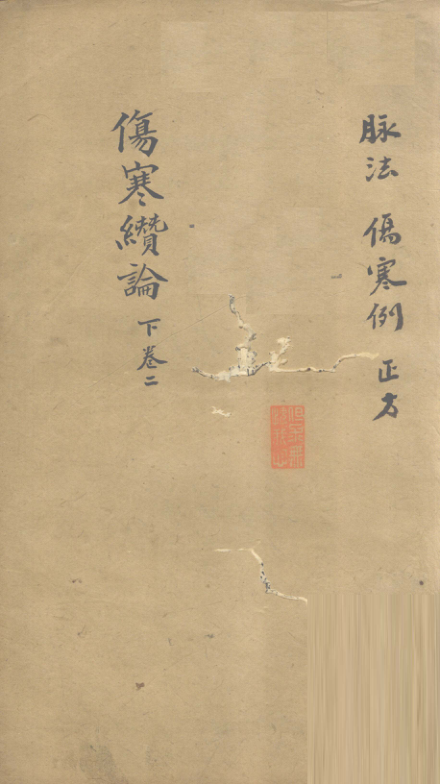 脉法 傷寒例 正方
傷寒纘論 下卷二